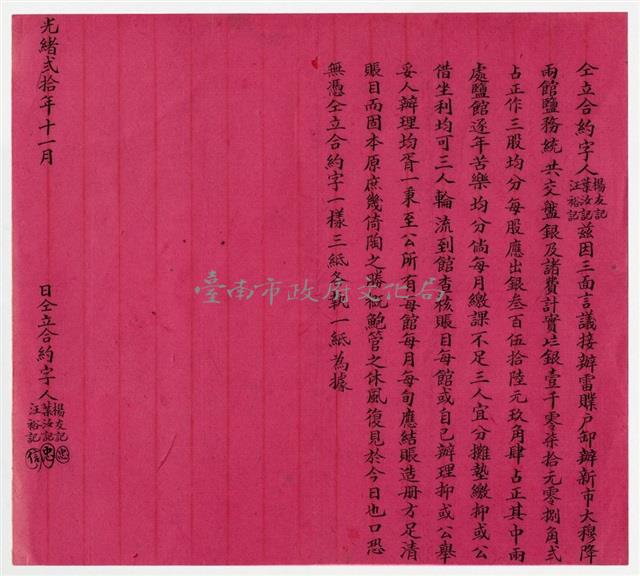 仝立合約字人楊友記葉汝記汪裕記茲因三面言議接辦雷贌戶卸辦新市大穆降
兩館鹽務統共交盤銀及諸費計實
銀壹千零柒拾元零捌角弍
占正作三股均分每股應出銀叁百伍拾陸元玖角肆占正其中兩
處鹽館逐年苦樂均分倘每月繳課不足三人宜分攤墊繳抑或公
借坐利均可三人輪流到館查核賬目每館或自己辦理抑或公舉
妥人辦理均胥一秉至公所有每館每月每旬應結賬造册方足清
賬目而固本原庶幾倚陶之勝概鮑管之休風復見於今日也口恐
無憑仝立合約字一樣三紙各執一紙為據
光緒弍拾年十一月 日仝立合約字人楊友記葉汝記汪裕記
臺南市政府文化局